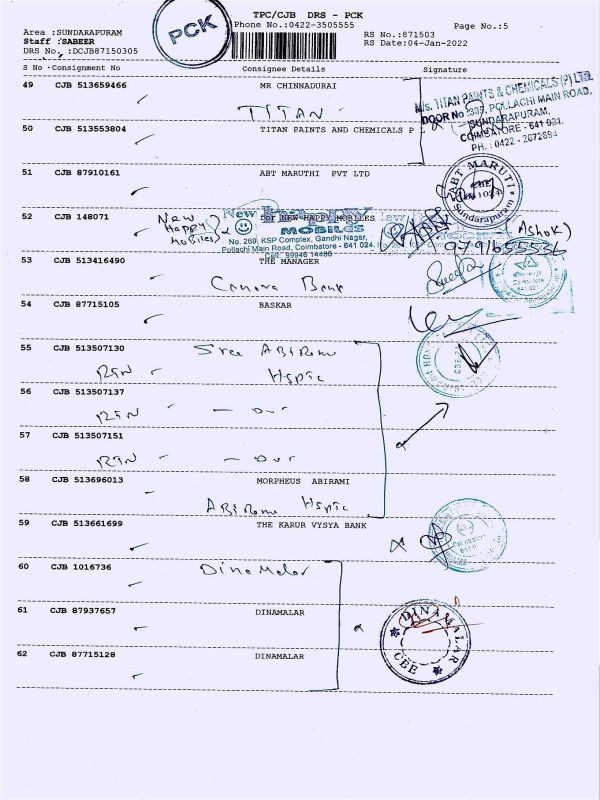 PCK
TPC/CJB DRS - PCK
Phone No.:0422-3505555
Page No.:5
Area :SUNDARAPURAM
Staff :SABEER
DRS No. :DCJB87150305
RS No.:871503
RS Date:04-Jan-2022
S No Consignment No Consignee Details Signature
49 CJB 513659466 MR CHINNADURAI
TITAN
M/s. TITAN PAINTS & CHEMICALS (P) LTD.
DOOR No :309, POLLACHI MAIN ROAD,
SUNDARAPURAM,
COIMBATORE - 641 024.
50 CJB 513553804 TITAN PAINTS AND CHEMICALS P
51 CJB 87910161 ABT MARUTHI PVT LTD
ABT MARUTI
Sundarapuram
52 CJB 148071 for NEW HAPPY MOBILES
New
Happy
Mobiles
New Happy
MOBILES
No. 269, KSP Complex, Gandhi Nagar,
Pollachi Main Road, Coimbatore - 641 024.
Cell: 99946 14480
(Ashok)
53 CJB 513416490 THE MANAGER
Canara Bank
54 CJB 87715105 BASKAR
55 CJB 513507130 Sree ABIRami
RTN
56 CJB 513507137
RTN
57 CJB 513507151
RTN
58 CJB 513696013 MORPHEUS ABIRAMI
ABIRami
59 CJB 513661699 THE KARUR VYSYA BANK
60 CJB 1016736 DinaMalar
61 CJB 87937657 DINAMALAR
DINAMALAR
CBE
62 CJB 87715128 DINAMALAR